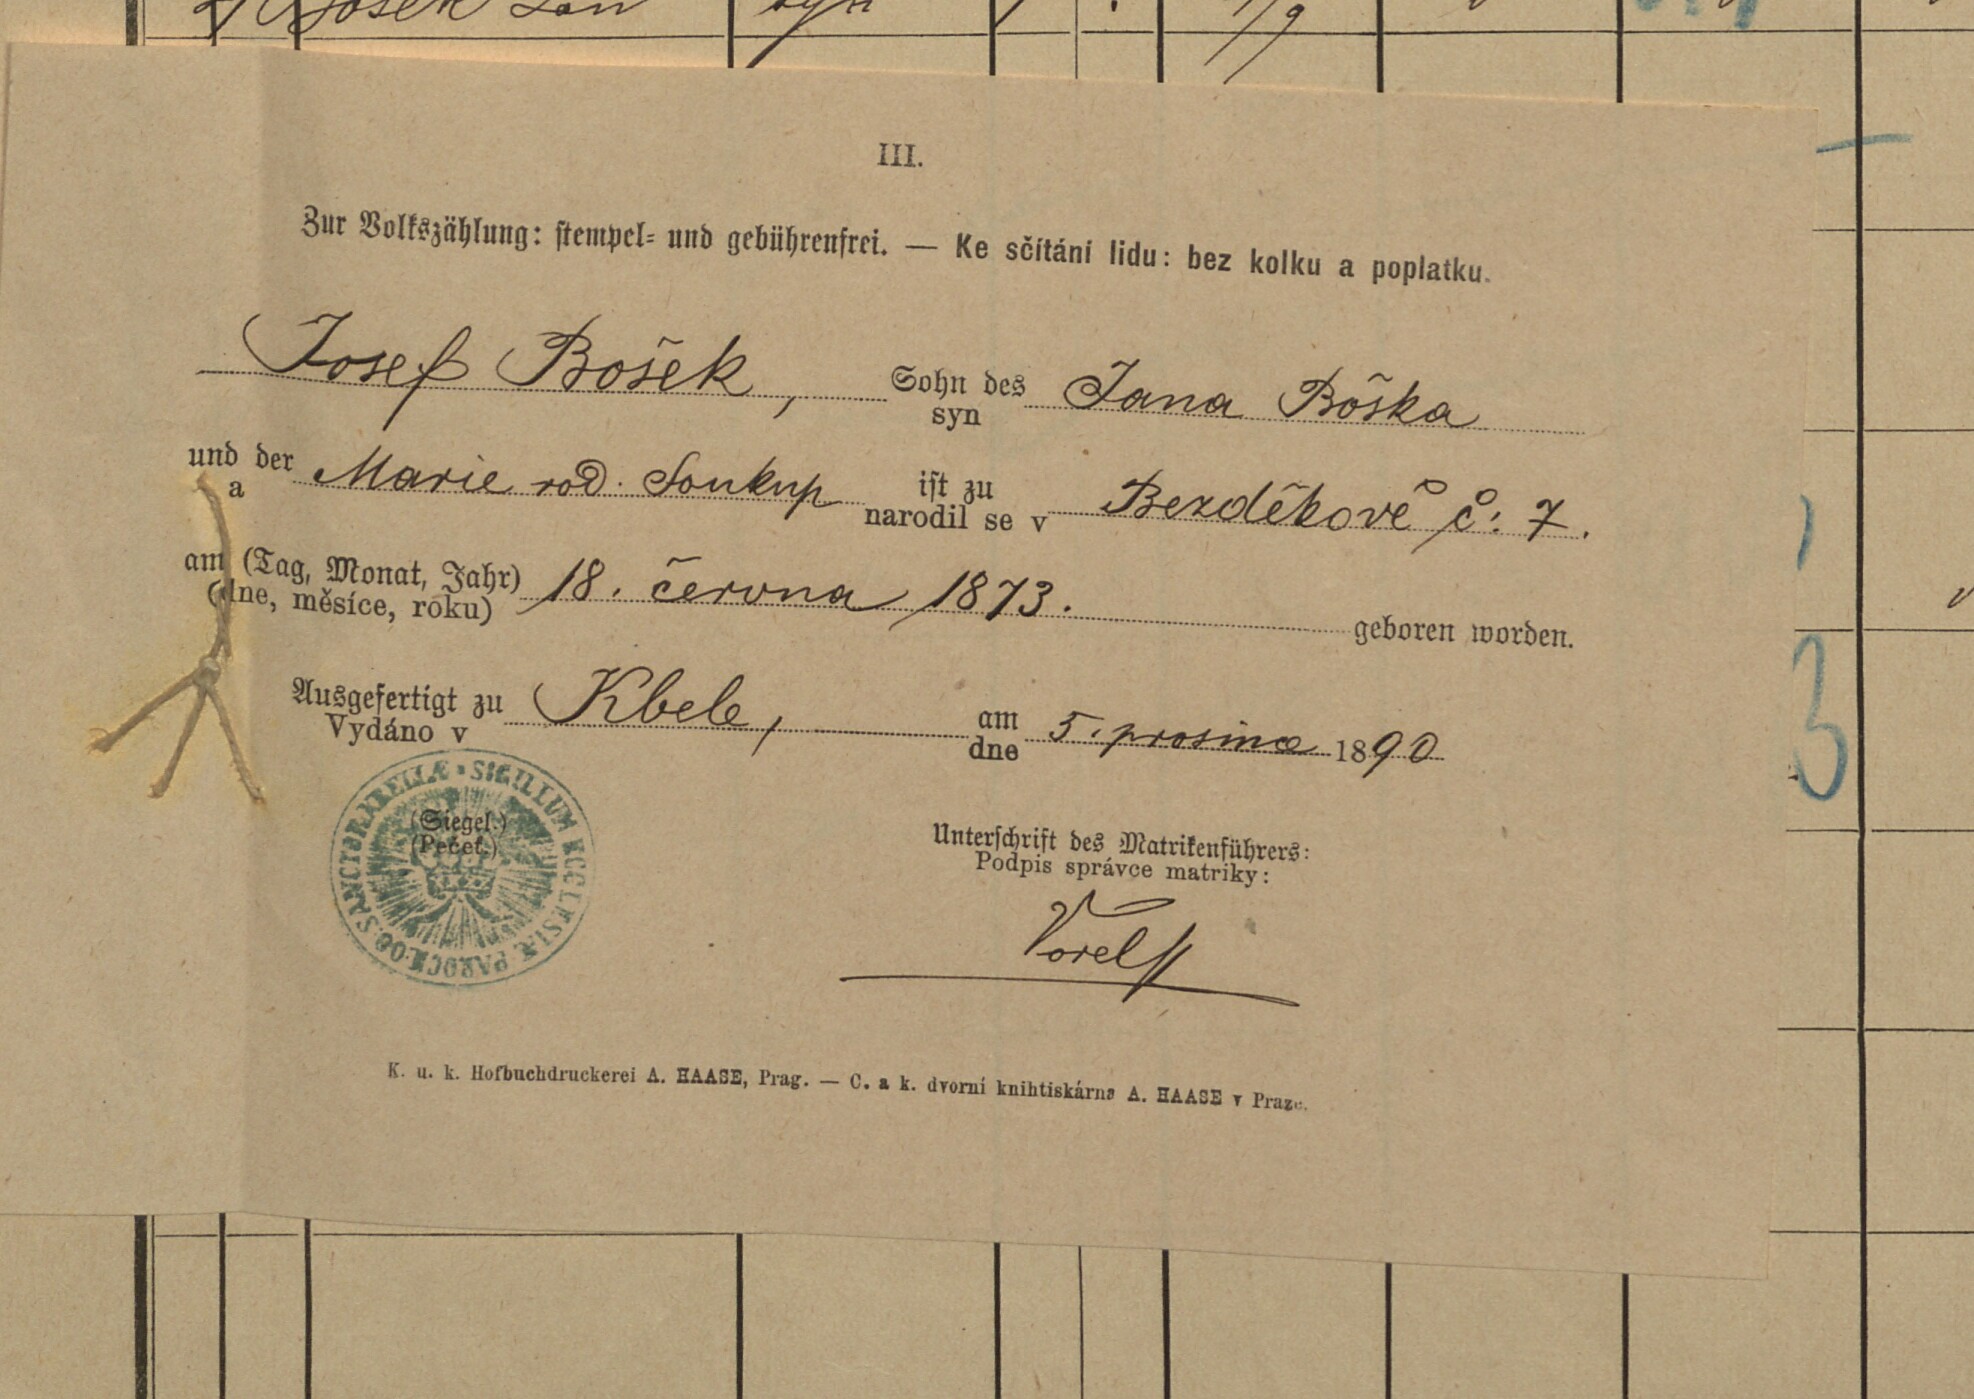 Bošek Jan syn
III.
Zur Volkszählung: stempel- und gebührenfrei. — Ke sčítání lidu: bez kolku a poplatku.
Josef Bošek, Sohn des Jana Bōška
syn
und der Marie rod. Soukup ist zu Bezděkově č: 7.
a narodil se v
am (Tag, Monat, Jahr) 18. června 1873. geboren worden.
(dne, měsíce, roku)
Ausgefertigt zu Kbele, am 5. prosince 1890
Vydáno v dne
SIGILLUM ECCLESIÆ PAROCH. OO. SANCTOR. KBELLÆ
(Siegel.)
(Pečeť.)
Unterschrift des Matrikenführers:
Podpis správce matriky:
Vorel
K. u. k. Hofbuchdruckerei A. HAASE, Prag. — C. a k. dvorní knihtiskárna A. HAASE v Praze.
3